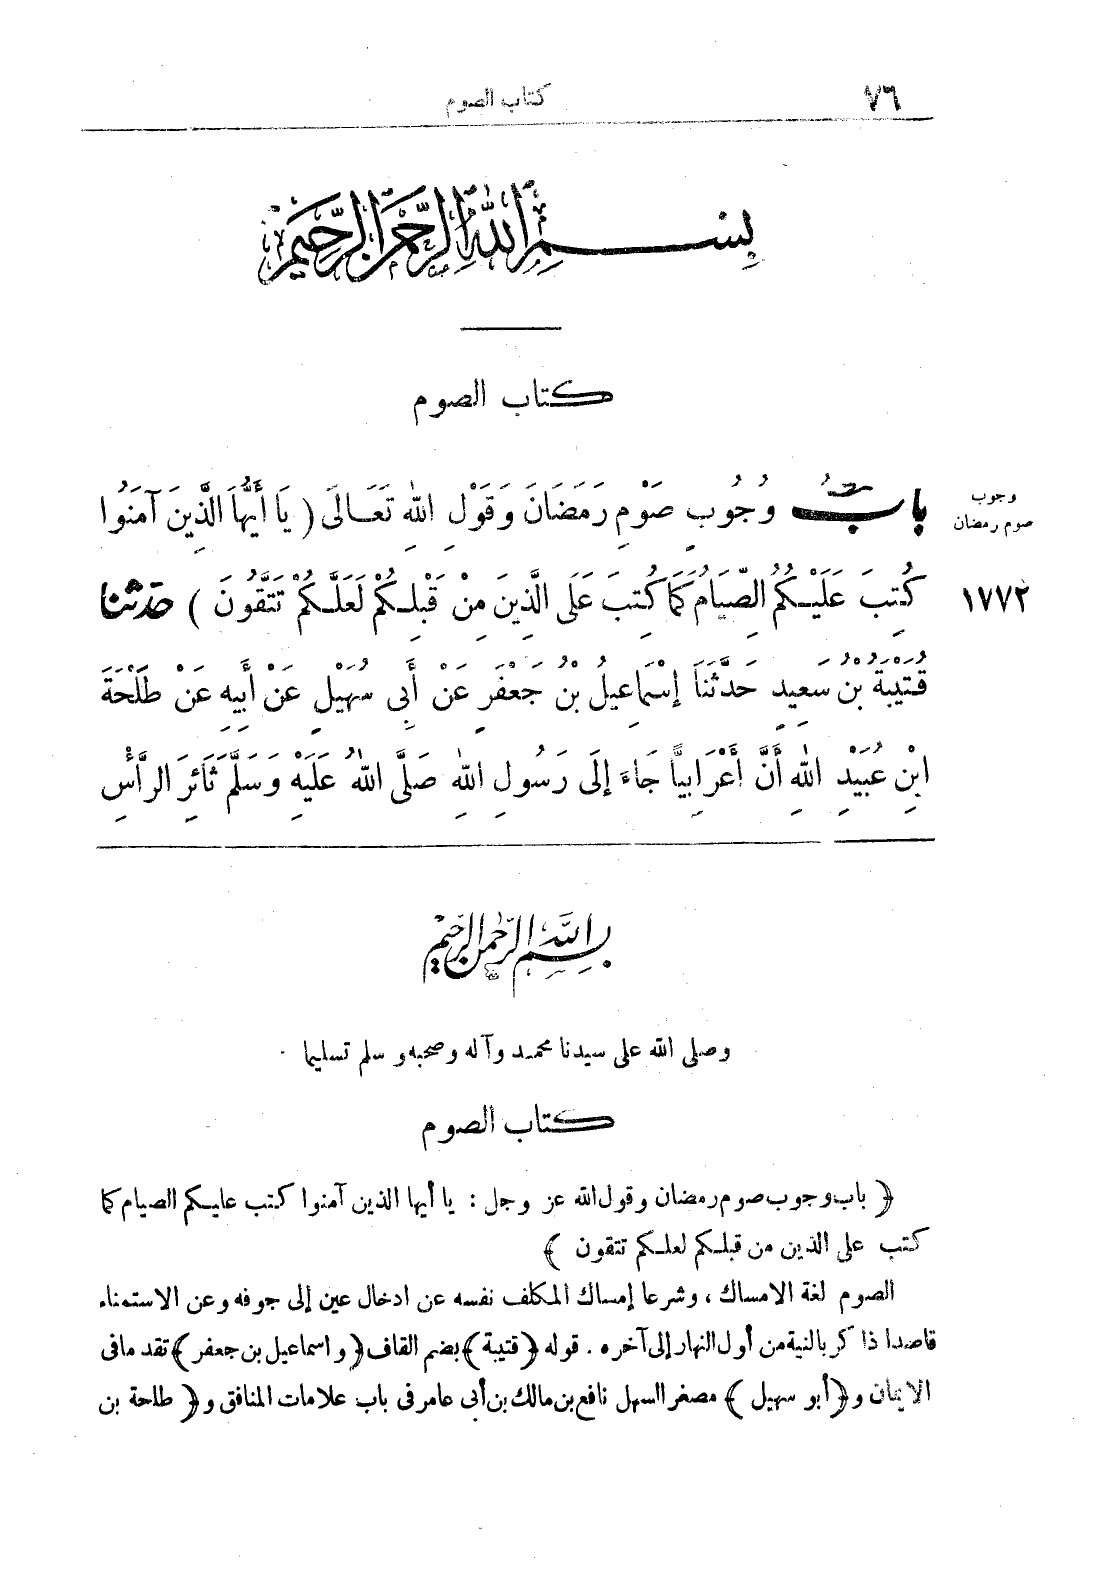 ٧٦
كتاب الصوم
بِسْمِ اللهِ الرَّحْمٰنِ الرَّحِيمِ
كتاب الصوم
وجوب
صوم رمضان
بَابُ وُجُوبِ صَوْمِ رَمَضَانَ وَقَوْلِ اللهِ تَعَالَى ( يَا أَيُّهَا الَّذِينَ آمَنُوا
١٧٧٢
كُتِبَ عَلَيْكُمُ الصِّيَامُ كَمَا كُتِبَ عَلَى الَّذِينَ مِنْ قَبْلِكُمْ لَعَلَّكُمْ تَتَّقُونَ ) حَدَّثَنَا
قُتَيْبَةُ بْنُ سَعِيدٍ حَدَّثَنَا إِسْمَاعِيلُ بْنُ جَعْفَرٍ عَنْ أَبِي سُهَيْلٍ عَنْ أَبِيهِ عَنْ طَلْحَةَ
ابْنِ عُبَيْدِ اللهِ أَنَّ أَعْرَابِيًّا جَاءَ إِلَى رَسُولِ اللهِ صَلَّى اللهُ عَلَيْهِ وَسَلَّمَ ثَائِرَ الرَّأْسِ
بسم الله الرحمن الرحيم
وصلى الله على سيدنا محمد وآله وصحبه وسلم تسليما
كتاب الصوم
﴿ باب وجوب صوم رمضان وقول الله عز وجل : يا أيها الذين آمنوا كتب عليكم الصيام كما
كتب على الذين من قبلكم لعلكم تتقون ﴾
الصوم لغة الامساك ، وشرعا إمساك المكلف نفسه عن ادخال عين إلى جوفه وعن الاستمناء
قاصدا ذا كر بالنية من أول النهار إلى آخره . قوله ﴿ قتيبة ﴾ بضم القاف ﴿ واسماعيل بن جعفر ﴾ تقدما فى
الايمان و ﴿ أبو سهيل ﴾ مصغر السهل نافع بن مالك بن أبى عامر فى باب علامات المنافق و ﴿ طلحة بن